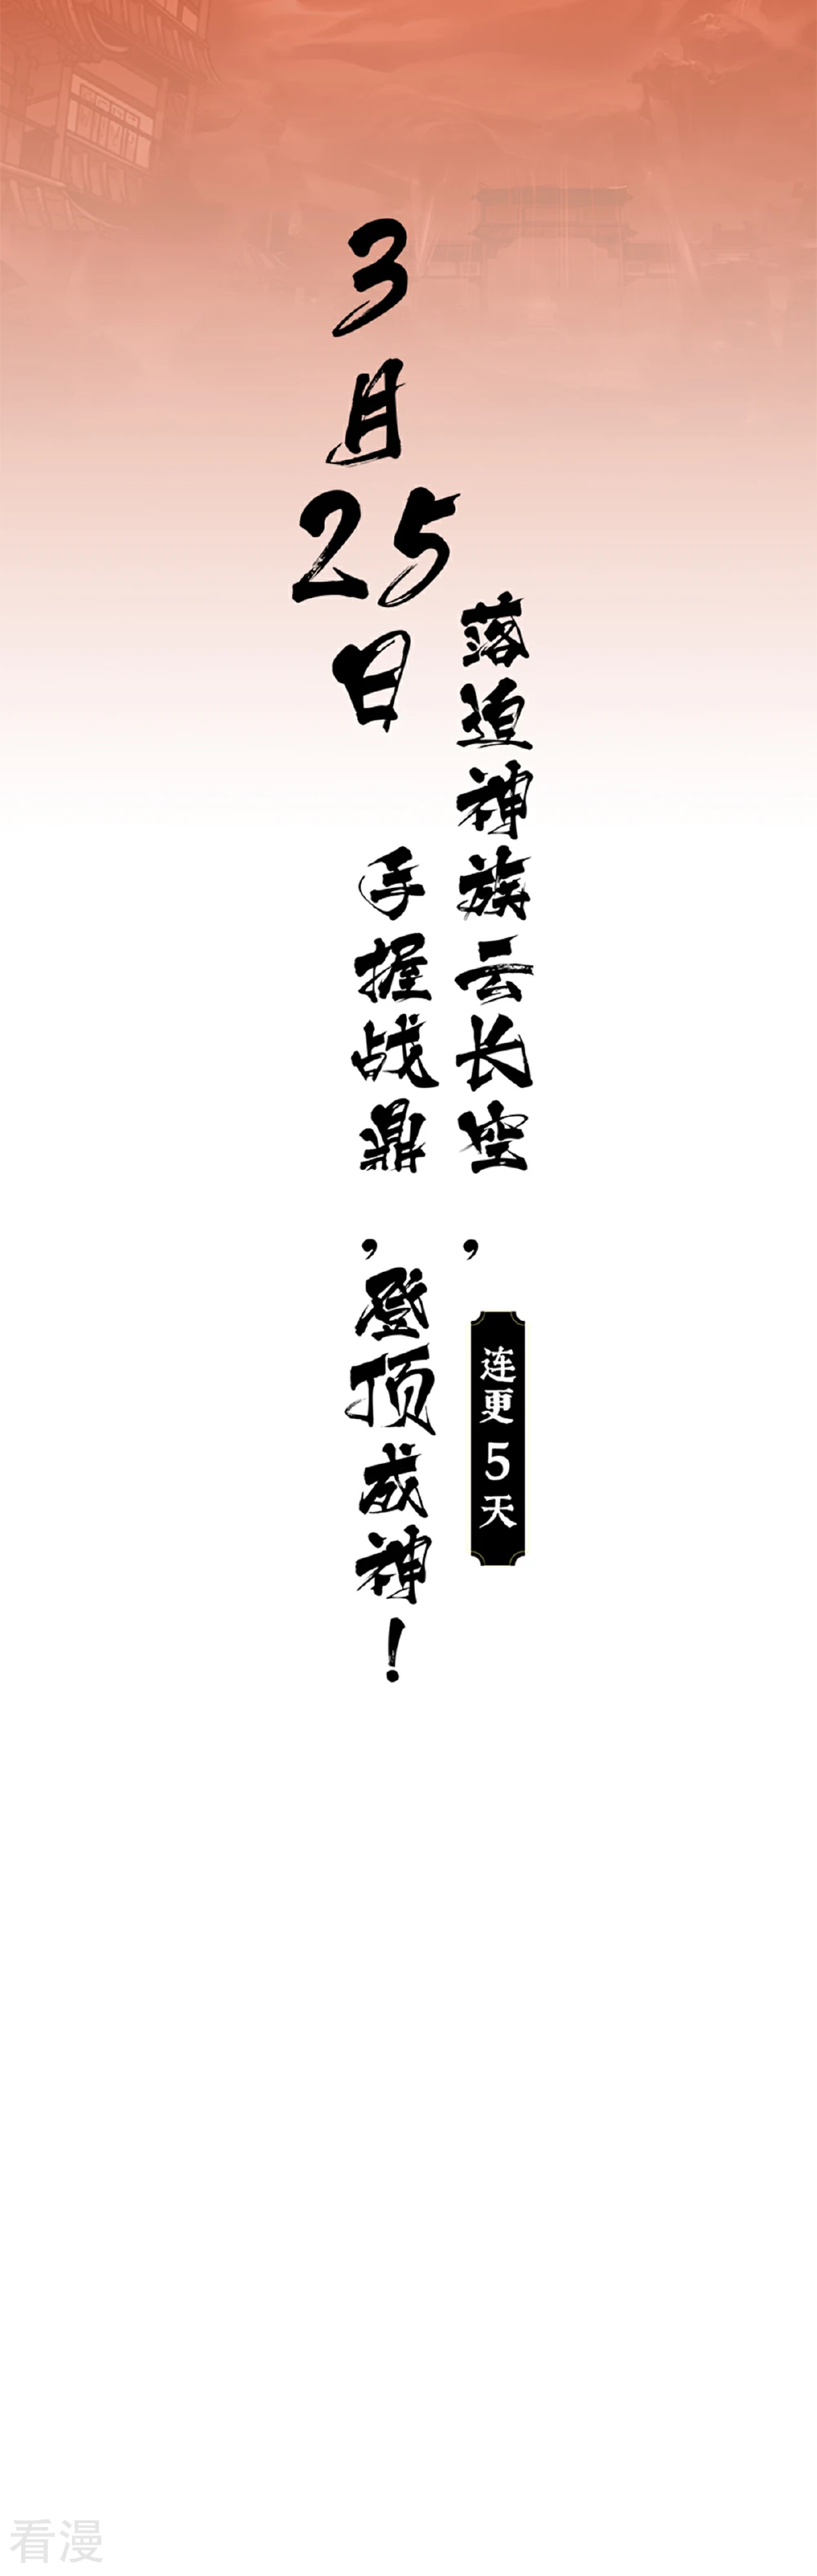 3月25日
落迫神族云长空，
手握战鼎，登顶成神！
连更5天
看漫